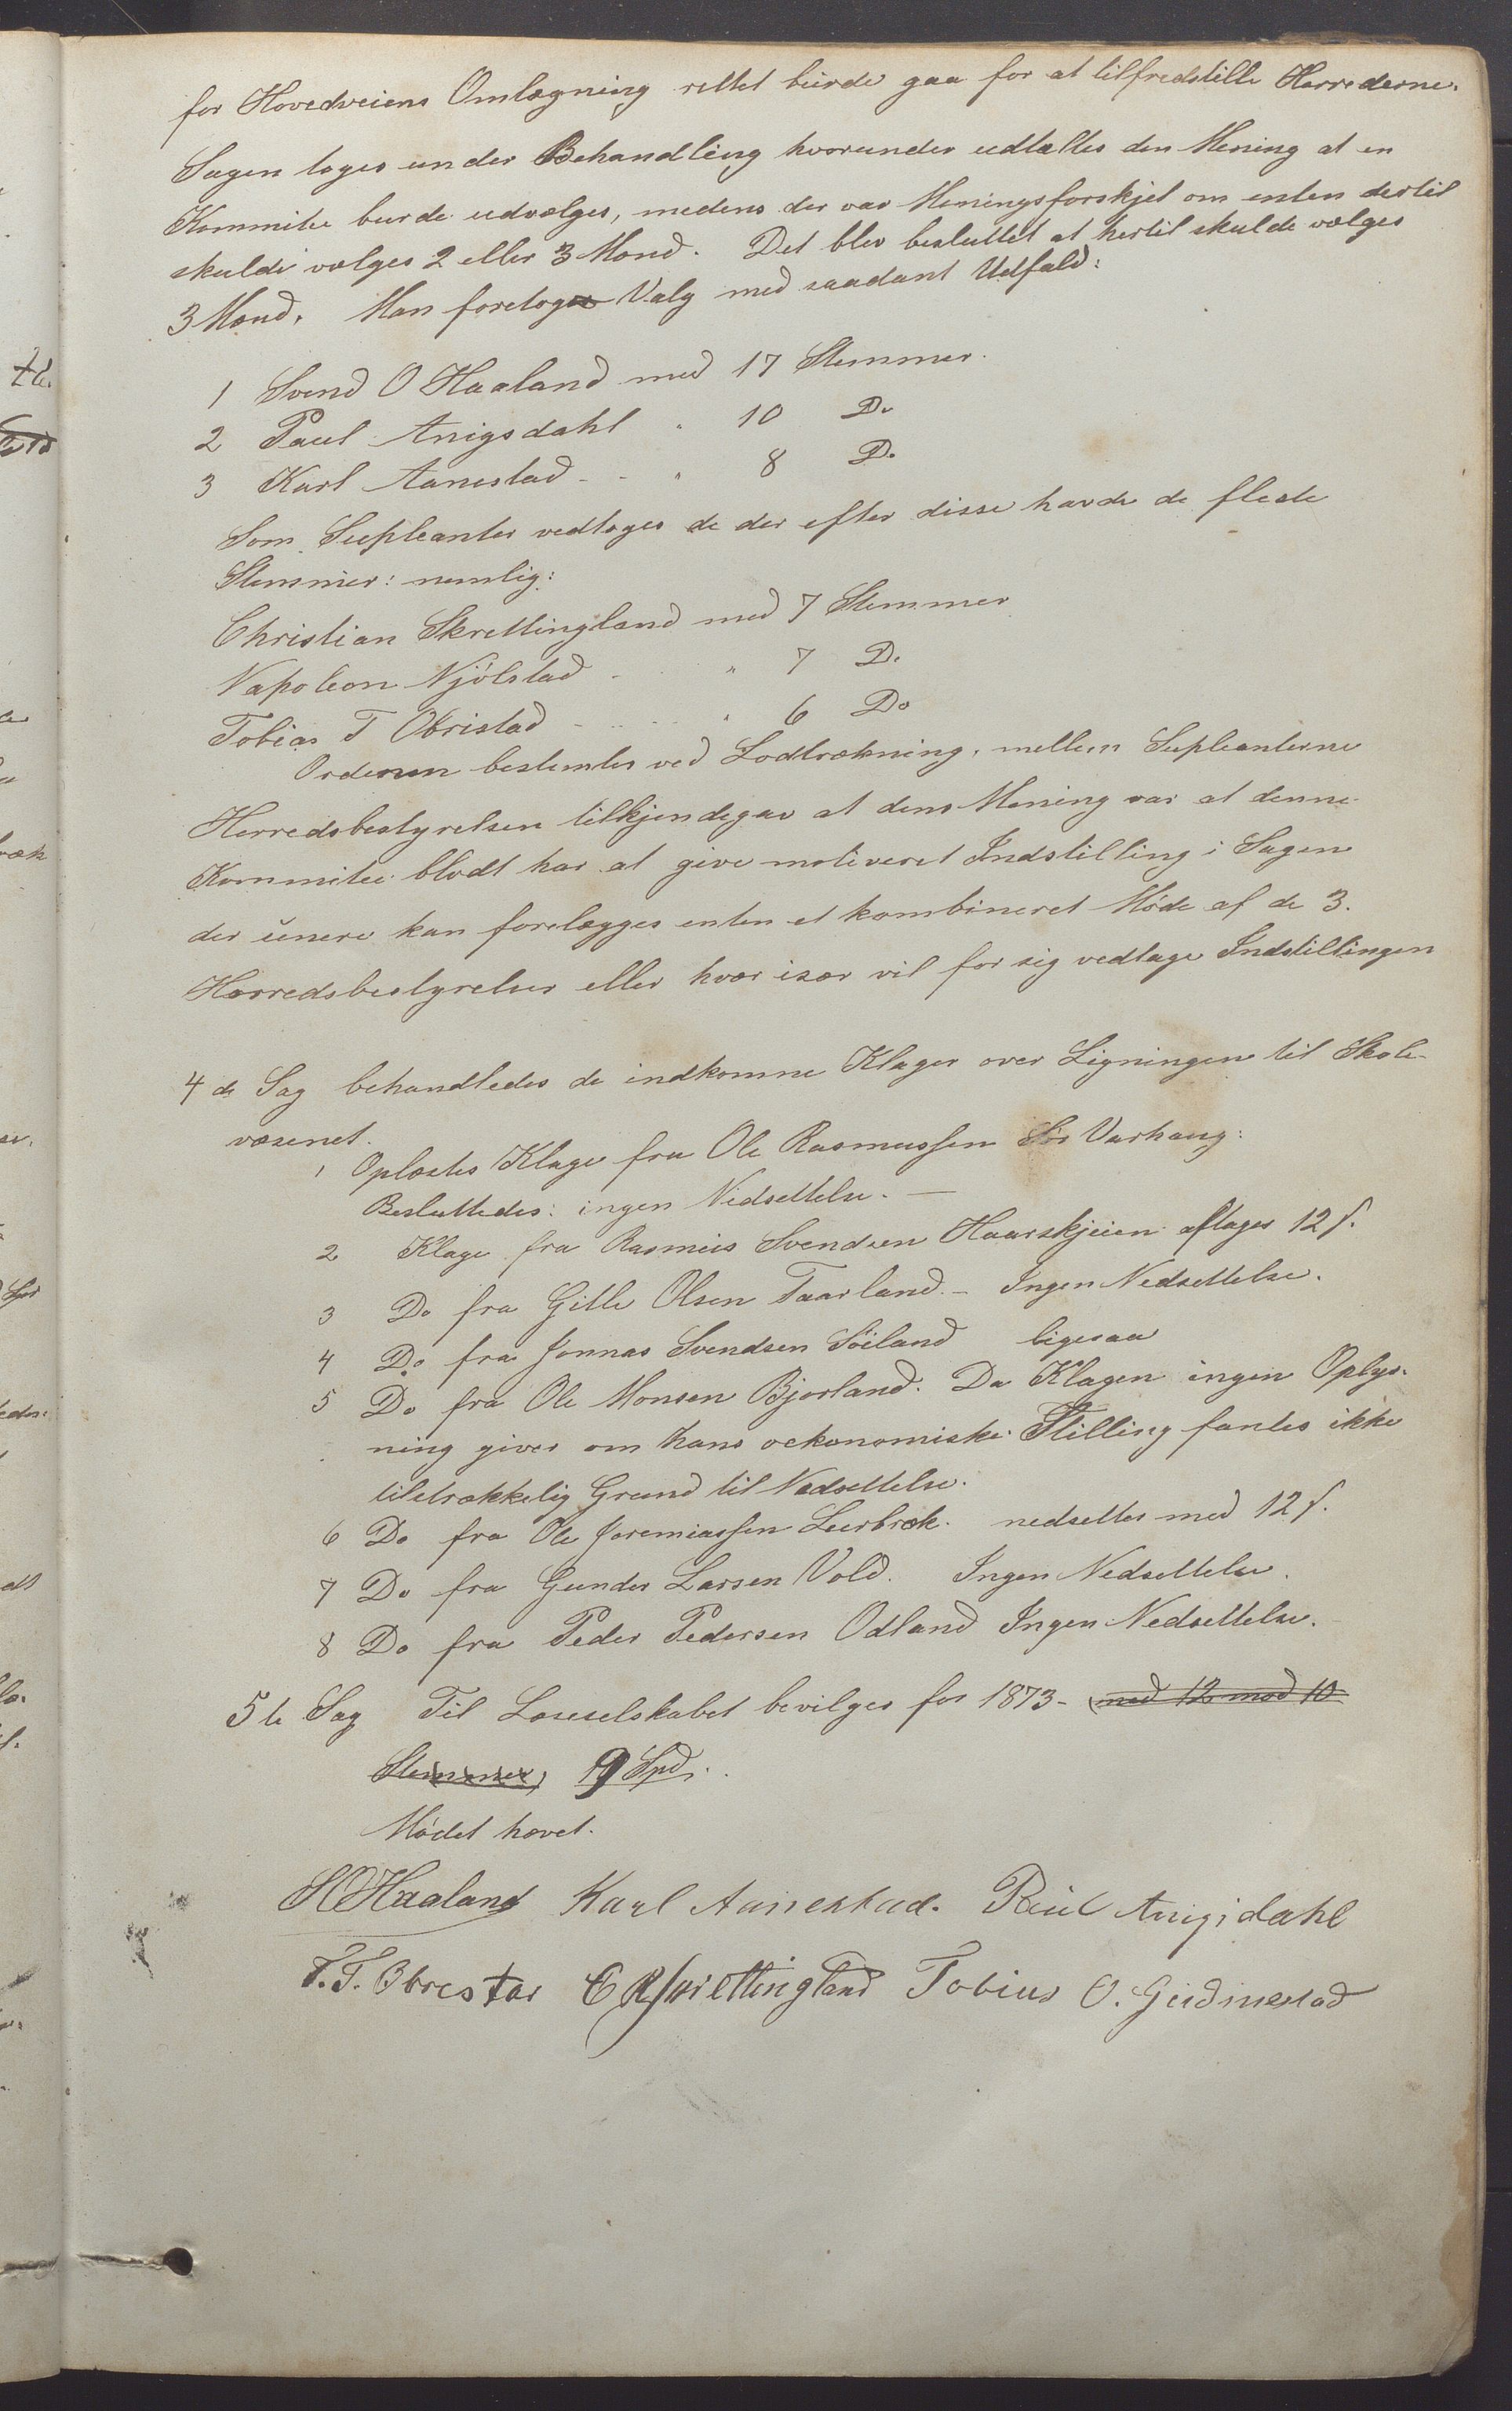 for Hovedveiens Omlægning rettet burde gaa for at tilfredstille Herrederne.
Sagen toges under Behandling hvorunder udtaltes den Mening at en
Kommitee burde udvælges, medens der var Meningsforskjel om enten dertil
skulde vælges 2 eller 3 Mænd. Det blev besluttet at hertil skulde vælges
3 Mænd. Man foretog Valg med saadant Udfald:
1 Svend O Haaland med 17 Stemmer.
2 Paul Anigsdahl " 10 Do
3 Karl Aanestad - - " 8 Do
Som Supleanter vedtoges de der efter disse havde de fleste
Stemmer: nemlig:
Christian Skrettingland med 7 Stemmer
Napoleon Njölstad - " 7 Do
Tobias T Obristad - - - " 6 Do
Ordenen bestemtes ved Lodtrækning, mellem Supleanterne
Herredsbestyrelsen tilkjendegav at dens Mening var at denne
Kommitee blodt har at give motiveret Indstilling i Sagen
der senere kan forelægges enten et kombineret Möde af de 3.
Herredsbestyrelser eller hvor især vil for sig vedtage Indstillingen
4de Sag behandledes de indkomne Klager over Ligningen til Skole-
væsenet.
1 Oplæstes Klage fra Ole Rasmussen Sör Varhaug:
Besluttedes: ingen Nedsettelse. —
2 Klage fra Rasmus Svendsen Haarskjeien aftages 12 s.
3 Do fra Gitle Olsen Taarland. - Ingen Nedsettelse.
4 Do fra Jonnas Svendsen Söiland ligesaa
5 Do fra Ole Monsen Bjorland. Da Klagen ingen Oplys-
ning giver om hans oekonomiske Stilling fantes ikke
tilstrækkelig Grund til Nedsettelse.
6 Do fra Ole Jeremiassen Leerbræk. nedsettes med 12 s.
7 Do fra Gunder Larsen Vold. Ingen Nedsettelse.
8 Do fra Peder Pedersen Odland Ingen Nedsettelse.
5te Sag Til Læseselskabet bevilges for 1873 - med 12 mod 10
Stemmer, 9 Spd.
Mödet hævet.
S O Haaland Karl Aanestad. Paul Anigsdahl
T. T. Obrestad C R Skrettingland Tobias O. Gudmestad